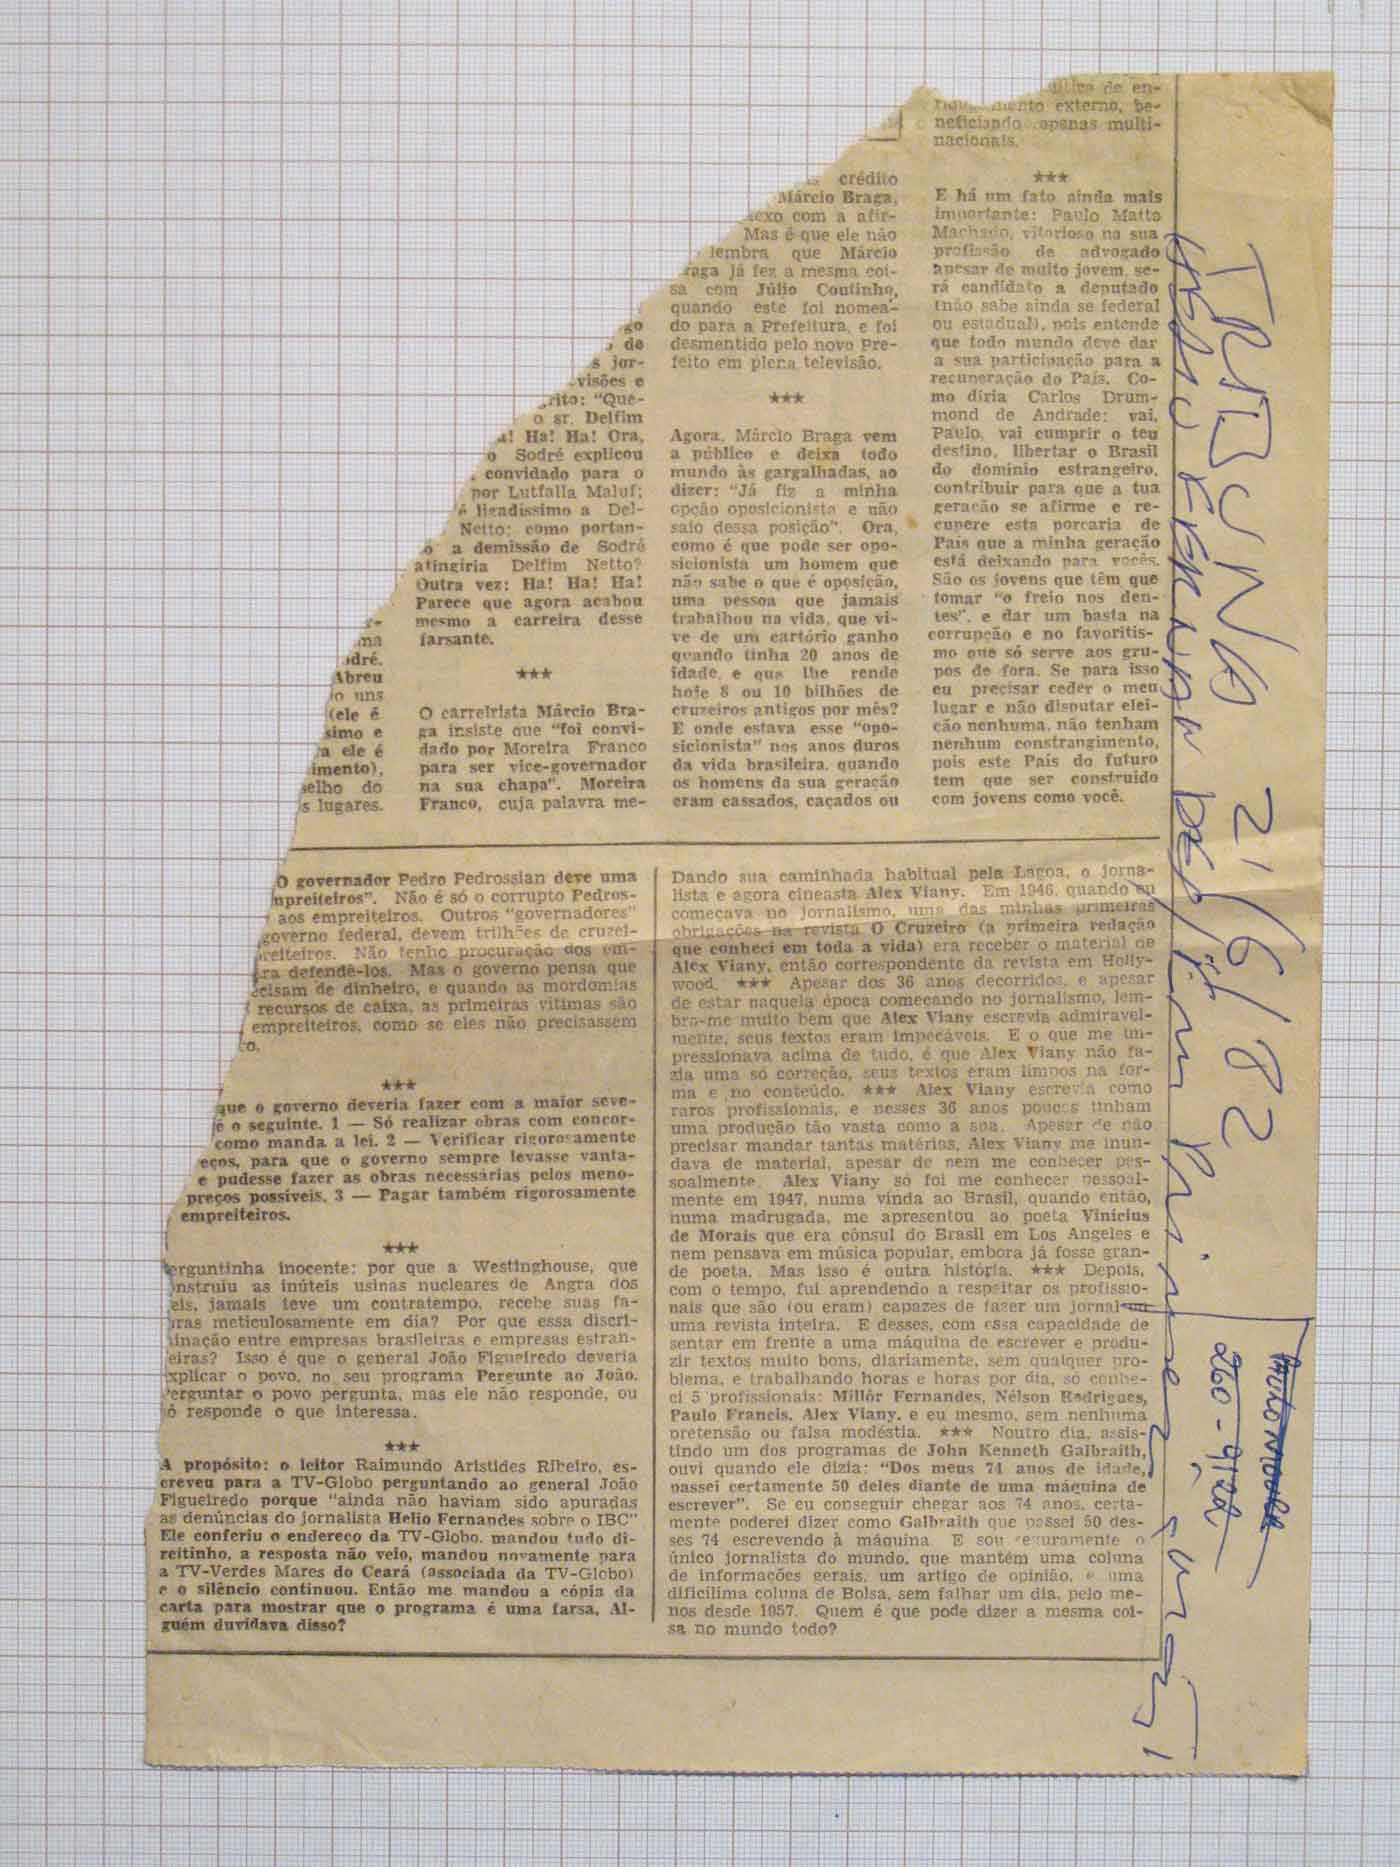 go
de
s jor-
visões e
grito: "Que-
o sr. Delfim
a! Ha! Ha! Ora,
o Sodré explicou
convidado para o
por Lutfalla Maluf;
é ligadíssimo a Del-
Netto: como portan-
a demissão de Sodré
atingiria Delfim Netto?
Outra vez: Ha! Ha! Ha!
Parece que agora acabou
mesmo a carreira desse
farsante.
ma
odré.
Abreu
o uns
(ele é
simo e
a ele é
imento),
selho do
s lugares.
★★★
O carreirista Márcio Bra-
ga insiste que "foi convi-
dado por Moreira Franco
para ser vice-governador
na sua chapa". Moreira
Franco, cuja palavra me-
crédito
Márcio Braga,
exo com a afir-
Mas é que ele não
lembra que Márcio
raga já fez a mesma coi-
sa com Júlio Coutinho,
quando este foi nomea-
do para a Prefeitura, e foi
desmentido pelo novo Pre-
feito em plena televisão.
★★★
Agora, Márcio Braga vem
a público e deixa todo
mundo às gargalhadas, ao
dizer: "Já fiz a minha
opção oposicionista e não
saio dessa posição". Ora,
como é que pode ser opo-
sicionista um homem que
não sabe o que é oposição,
uma pessoa que jamais
trabalhou na vida, que vi-
ve de um cartório ganho
quando tinha 20 anos de
idade, e que lhe rende
hoje 8 ou 10 bilhões de
cruzeiros antigos por mês?
E onde estava esse "opo-
sicionista" nos anos duros
da vida brasileira, quando
os homens da sua geração
eram cassados, caçados ou
de en-
externo, be-
neficiando apenas multi-
nacionais.
★★★
E há um fato ainda mais
importante: Paulo Matta
Machado, vitorioso na sua
profissão de advogado
apesar de muito jovem, se-
rá candidato a deputado
(não sabe ainda se federal
ou estadual), pois entende
que todo mundo deve dar
a sua participação para a
recuperação do País. Co-
mo diria Carlos Drum-
mond de Andrade: vai,
Paulo, vai cumprir o teu
destino, libertar o Brasil
do domínio estrangeiro,
contribuir para que a tua
geração se afirme e re-
cupere esta porcaria de
País que a minha geração
está deixando para vocês.
São os jovens que têm que
tomar "o freio nos den-
tes", e dar um basta na
corrupção e no favoritis-
mo que só serve aos gru-
pos de fora. Se para isso
eu precisar ceder o meu
lugar e não disputar elei-
ção nenhuma, não tenham
nenhum constrangimento,
pois este País do futuro
tem que ser construído
com jovens como você.
O governador Pedro Pedrossian deve uma
mpreiteiros". Não é só o corrupto Pedros-
aos empreiteiros. Outros "governadores"
governo federal, devem trilhões de cruzei-
preiteiros. Não tenho procuração dos em-
ra defendê-los. Mas o governo pensa que
ecisam de dinheiro, e quando as mordomias
recursos de caixa, as primeiras vítimas são
empreiteiros, como se eles não precisassem
co.
★★★
que o governo deveria fazer com a maior seve-
é o seguinte. 1 — Só realizar obras com concor-
como manda a lei. 2 — Verificar rigorosamente
eços, para que o governo sempre levasse vanta-
e pudesse fazer as obras necessárias pelos meno-
preços possíveis. 3 — Pagar também rigorosamente
empreiteiros.
★★★
erguntinha inocente: por que a Westinghouse, que
onstruiu as inúteis usinas nucleares de Angra dos
eis, jamais teve um contratempo, recebe suas fa-
uras meticulosamente em dia? Por que essa discri-
inação entre empresas brasileiras e empresas estran-
eiras? Isso é que o general João Figueiredo deveria
explicar o povo, no seu programa Pergunte ao João.
Perguntar o povo pergunta, mas ele não responde, ou
ó responde o que interessa.
★★★
A propósito: o leitor Raimundo Aristides Ribeiro, es-
creveu para a TV-Globo perguntando ao general João
Figueiredo porque "ainda não haviam sido apuradas
as denúncias do jornalista Helio Fernandes sobre o IBC"
Ele conferiu o endereço da TV-Globo, mandou tudo di-
reitinho, a resposta não veio, mandou novamente para
a TV-Verdes Mares do Ceará (associada da TV-Globo)
e o silêncio continuou. Então me mandou a cópia da
carta para mostrar que o programa é uma farsa. Al-
guém duvidava disso?
Dando sua caminhada habitual pela Lagoa, o jorna-
lista e agora cineasta Alex Viany. Em 1946, quando eu
começava no jornalismo, uma das minhas primeiras
obrigações na revista O Cruzeiro (a primeira redação
que conheci em toda a vida) era receber o material de
Alex Viany, então correspondente da revista em Holly-
wood. ★★★ Apesar dos 36 anos decorridos, e apesar
de estar naquela época começando no jornalismo, lem-
bro-me muito bem que Alex Viany escrevia admiravel-
mente, seus textos eram impecáveis. E o que me im-
pressionava acima de tudo, é que Alex Viany não fa-
zia uma só correção, seus textos eram limpos na for-
ma e no conteúdo. ★★★ Alex Viany escrevia como
raros profissionais, e nesses 36 anos poucos tinham
uma produção tão vasta como a sua. Apesar de não
precisar mandar tantas matérias, Alex Viany me inun-
dava de material, apesar de nem me conhecer pes-
soalmente. Alex Viany só foi me conhecer pessoal-
mente em 1947, numa vinda ao Brasil, quando então,
numa madrugada, me apresentou ao poeta Vinicius
de Morais que era cônsul do Brasil em Los Angeles e
nem pensava em música popular, embora já fosse gran-
de poeta. Mas isso é outra história. ★★★ Depois,
com o tempo, fui aprendendo a respeitar os profissio-
nais que são (ou eram) capazes de fazer um jornal ou
uma revista inteira. E desses, com essa capacidade de
sentar em frente a uma máquina de escrever e produ-
zir textos muito bons, diariamente, sem qualquer pro-
blema, e trabalhando horas e horas por dia, só conhe-
ci 5 profissionais: Millôr Fernandes, Nélson Rodrigues,
Paulo Francis, Alex Viany, e eu mesmo, sem nenhuma
pretensão ou falsa modéstia. ★★★ Noutro dia, assis-
tindo um dos programas de John Kenneth Galbraith,
ouvi quando ele dizia: "Dos meus 74 anos de idade,
passei certamente 50 deles diante de uma máquina de
escrever". Se eu conseguir chegar aos 74 anos, certa-
mente poderei dizer como Galbraith que passei 50 des-
ses 74 escrevendo à máquina. E sou seguramente o
único jornalista do mundo, que mantém uma coluna
de informações gerais, um artigo de opinião, e uma
dificílima coluna de Bolsa, sem falhar um dia, pelo me-
nos desde 1957. Quem é que pode dizer a mesma coi-
sa no mundo todo?
TRIBUNA 21/6/82